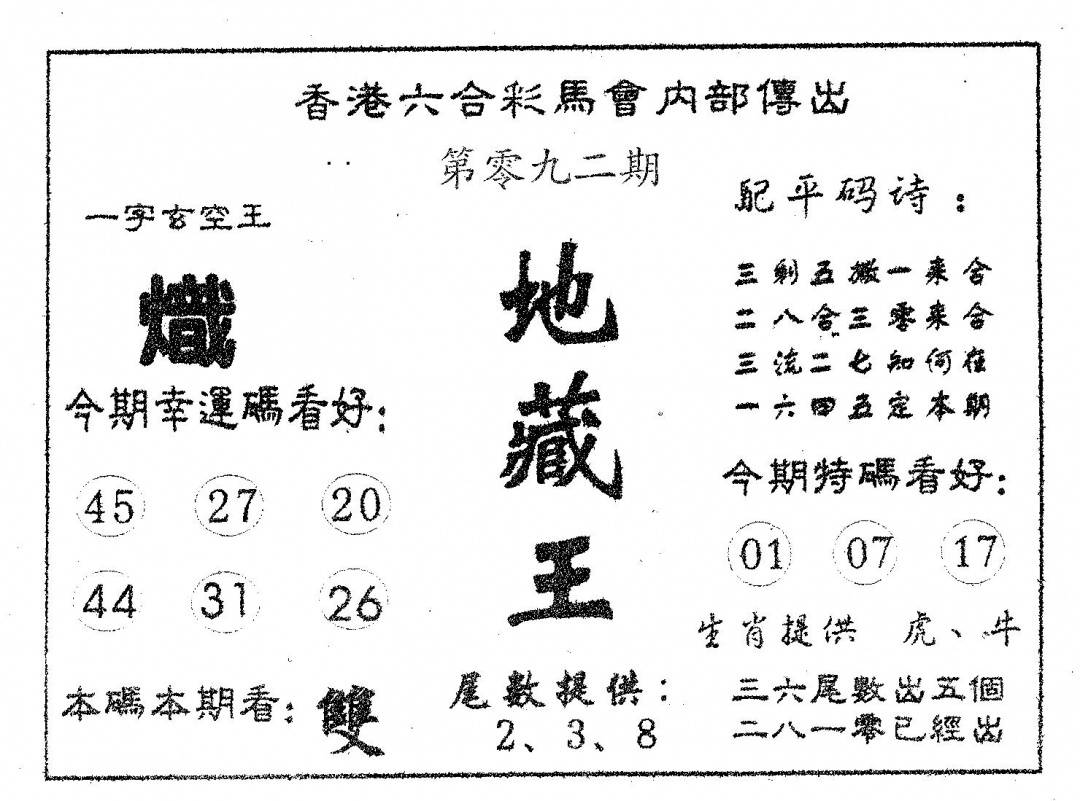 香港六合彩馬會内部傳出
第零九二期
一字玄空王
熾
今期幸運碼看好：
45 27 20
44 31 26
本碼本期看：雙
地藏王
尾數提供：
2、3、8
配平码诗：
三剩五搬一来合
二八合三零来合
三流二七知何在
一六四五定本期
今期特碼看好：
01 07 17
生肖提供 虎、牛
三六尾數出五個
二八一零已經出